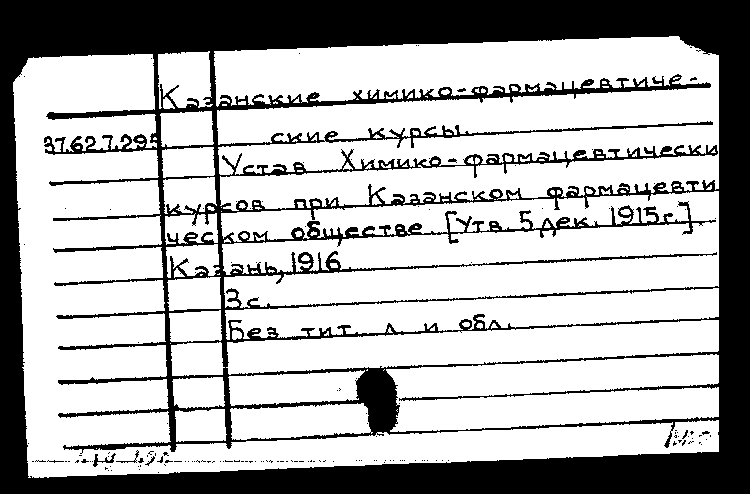 Казанские химико-фармацевтиче-
37.62.7.295. ские курсы.
Устав Химико-фармацевтически
курсов при Казанском фармацевти
ческом обществе. [Утв. 5 дек. 1915 г.].
Казань, 1916.
3 с.
Без тит. л. и обл.